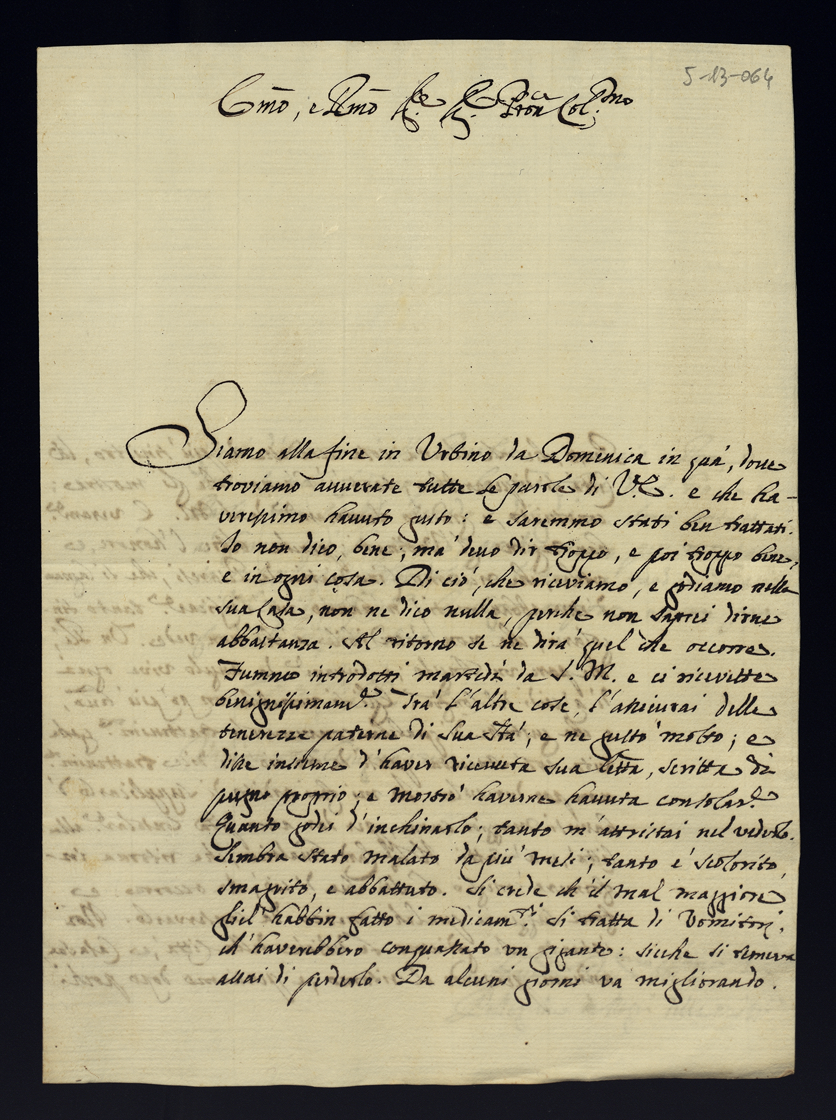 5-13-064
Em̃o, e Rm̃o Sig.re Sig.r Pron Col.mo
Siamo alla fine in Urbino da Domenica in quà, dove
troviamo avverate tutte le parole di V.E. e che ha-
veressimo havuto gusto: e saremmo stati ben trattati.
Io non dico, bene; mà devo dir troppo, e poi troppo bene,
e in ogni cosa. Di ciò, che riceviamo, e godiamo nella
sua Casa, non ne dico nulla, perche non saprei dirne
abbastanza. Al ritorno se ne dirà quel che occorre.
Fummo introdotti martedì da S. M. e ci ricevette
benignissimam.te Trà l'altre cose, l'assicurai delle
tenerezze paterne di Sua S.tà; e ne gustò molto; e
disse insieme d'haver ricevuta sua lettã, scritta di
pugno proprio; e mostrò haverne havuta consolaz.e
Quanto godei d'inchinarlo; tanto m'attristai nel vederlo.
Sembra stato malato da più mesi; tanto è scolorito,
smagrito, e abbattuto. Si crede ch'il mal maggiore
gliel'habbin fatto i medicam.ti Si tratta di Vomitorj,
ch'haverebbero conquassato un gigante: sicche si temeva
assai di perderlo. Da alcuni giorni va migliorando.